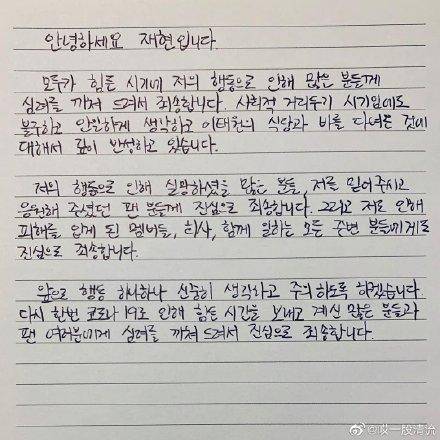 안녕하세요 재현입니다.
모두가 힘든 시기에 저의 행동으로 인해 많은 분들께
심려를 끼쳐 드려서 죄송합니다. 사회적 거리두기 시기임에도
불구하고 안일하게 생각하고 이태원의 식당과 바를 다녀온 것에
대해서 깊이 반성하고 있습니다.
저의 행동으로 인해 실망하셨을 많은 분들, 저를 믿어주시고
응원해 주셨던 팬 분들께 진심으로 죄송합니다. 그리고 저로 인해
피해를 입게 된 멤버들, 회사, 함께 일하는 모든 주변 분들에게도
진심으로 죄송합니다.
앞으로 행동 하나하나 신중히 생각하고 주의하도록 하겠습니다.
다시 한번 코로나 19로 인해 힘든 시간을 보내고 계신 많은 분들과
팬 여러분에게 심려를 끼쳐 드려서 진심으로 죄송합니다.
@哎一股清流